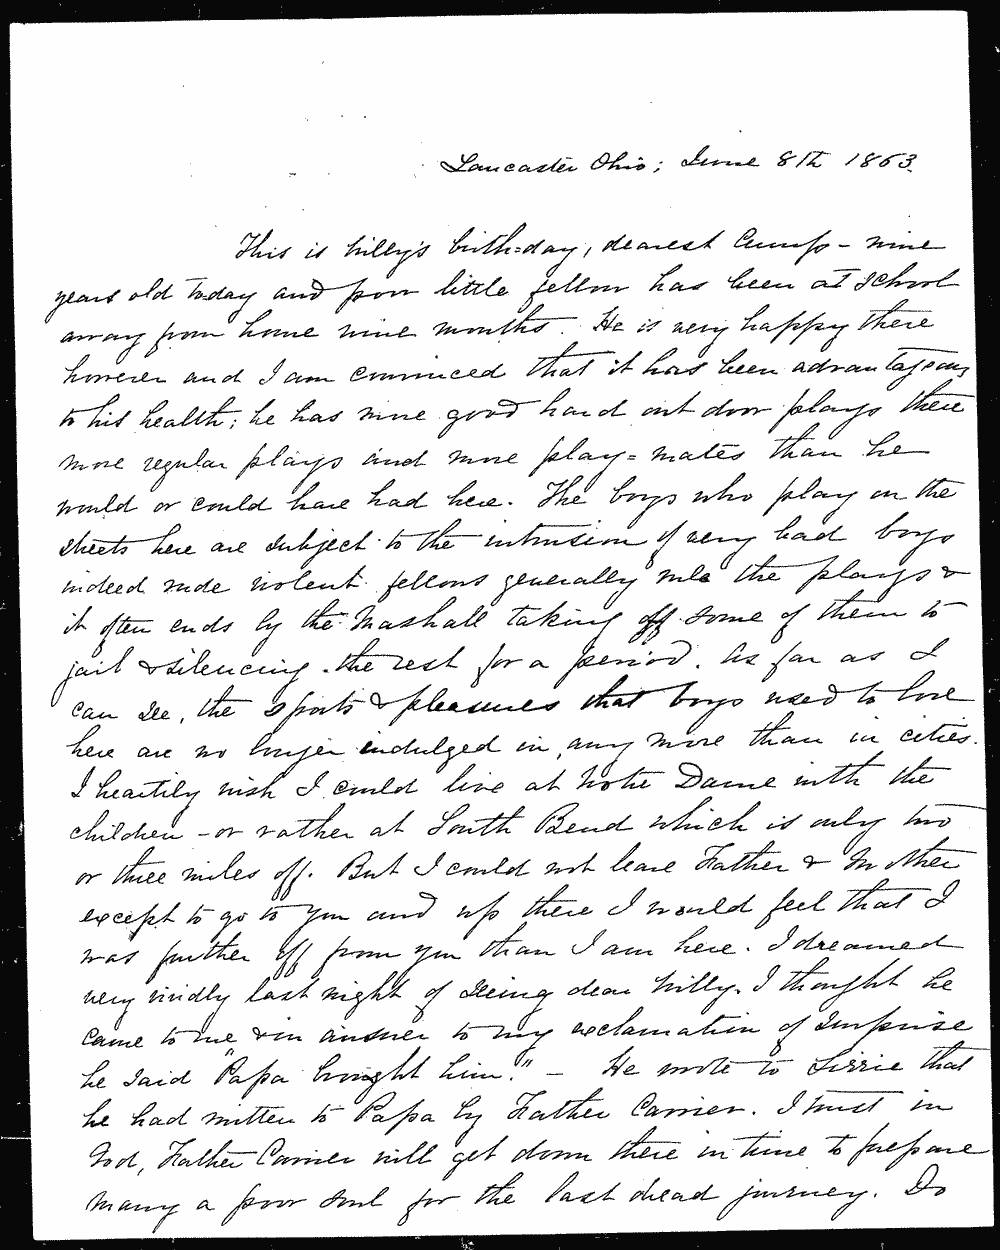 Lancaster Ohio; June 8th 1863.
This is Willy's birth=day, dearest Cump – nine
years old to-day and poor little fellow has been at school
away from home nine months. He is very happy there
however and I am convinced that it has been advantageous
to his health; he has more good hard out door plays there
more regular plays and more play=mates than he
would or could have had here. The boys who play on the
streets here are subject to the intrusion of very bad boys
indeed rude violent fellows generally rule the plays &
it often ends by the Mashall taking off some of them to
jail & silencing the rest for a period. As far as I
can see, the sports & pleasures that boys used to love
here are no longer indulged in, any more than in cities.
I heartily wish I could live at Notre Dame with the
children – or rather at South Bend which is only two
or three miles off. But I could not leave Father & Mother
except to go to you and up there I would feel that I
was further off from you than I am here. I dreamed
very vividly last night of seeing dear Willy. I thought he
came to me & in answer to my exclamation of surprise
he said "Papa brought him." – He wrote to Lizzie that
he had written to Papa by Father Carrier. I trust in
God, Father Carrier will get down there in time to prepare
many a poor soul for the last dread journey. Do